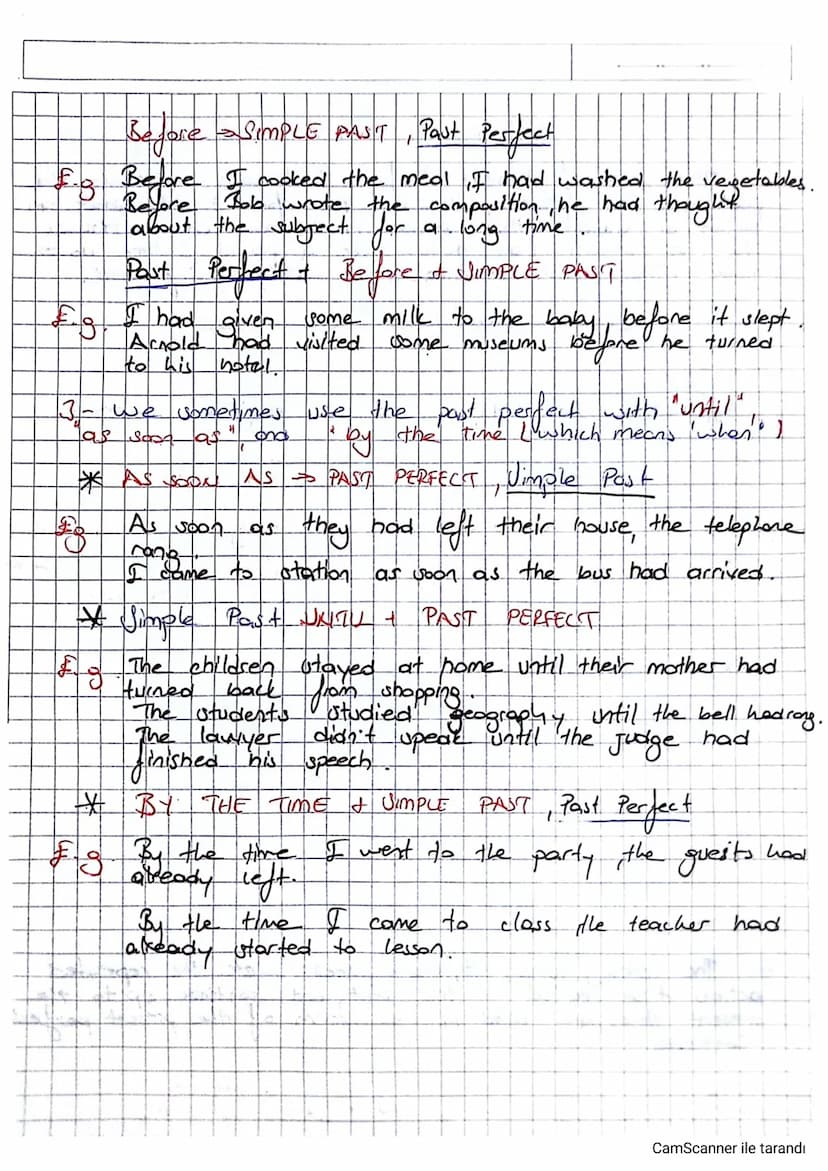 Before → SIMPLE PAST , Past Perfect
E.g Before I cooked the meal , I had washed the vegetables.
Before Bob wrote the composition , he had thought
about the subject for a long time .
Past Perfect + Before + SIMPLE PAST
E.g. I had given some milk to the baby before it slept .
Arnold had visited some museums before he turned
to his hotel.
3- We sometimes use the past perfect with "until",
"as soon as", and "by the time (which means 'when')
* AS SOON AS → PAST PERFECT , Simple Past
Eg As soon as they had left their house, the telephone
rang .
I came to station as soon as the bus had arrived.
* Simple Past UNTIL + PAST PERFECT
E.g The children stayed at home until their mother had
turned back from shopping .
The students studied geography until the bell had rang.
The lawyer didn't speak until the judge had
finished his speech .
* BY THE TIME + SIMPLE PAST , Past Perfect
E.g. By the time I went to the party , the guests had
already left.
By the time I came to class the teacher had
already started to lesson.
CamScanner ile tarandı